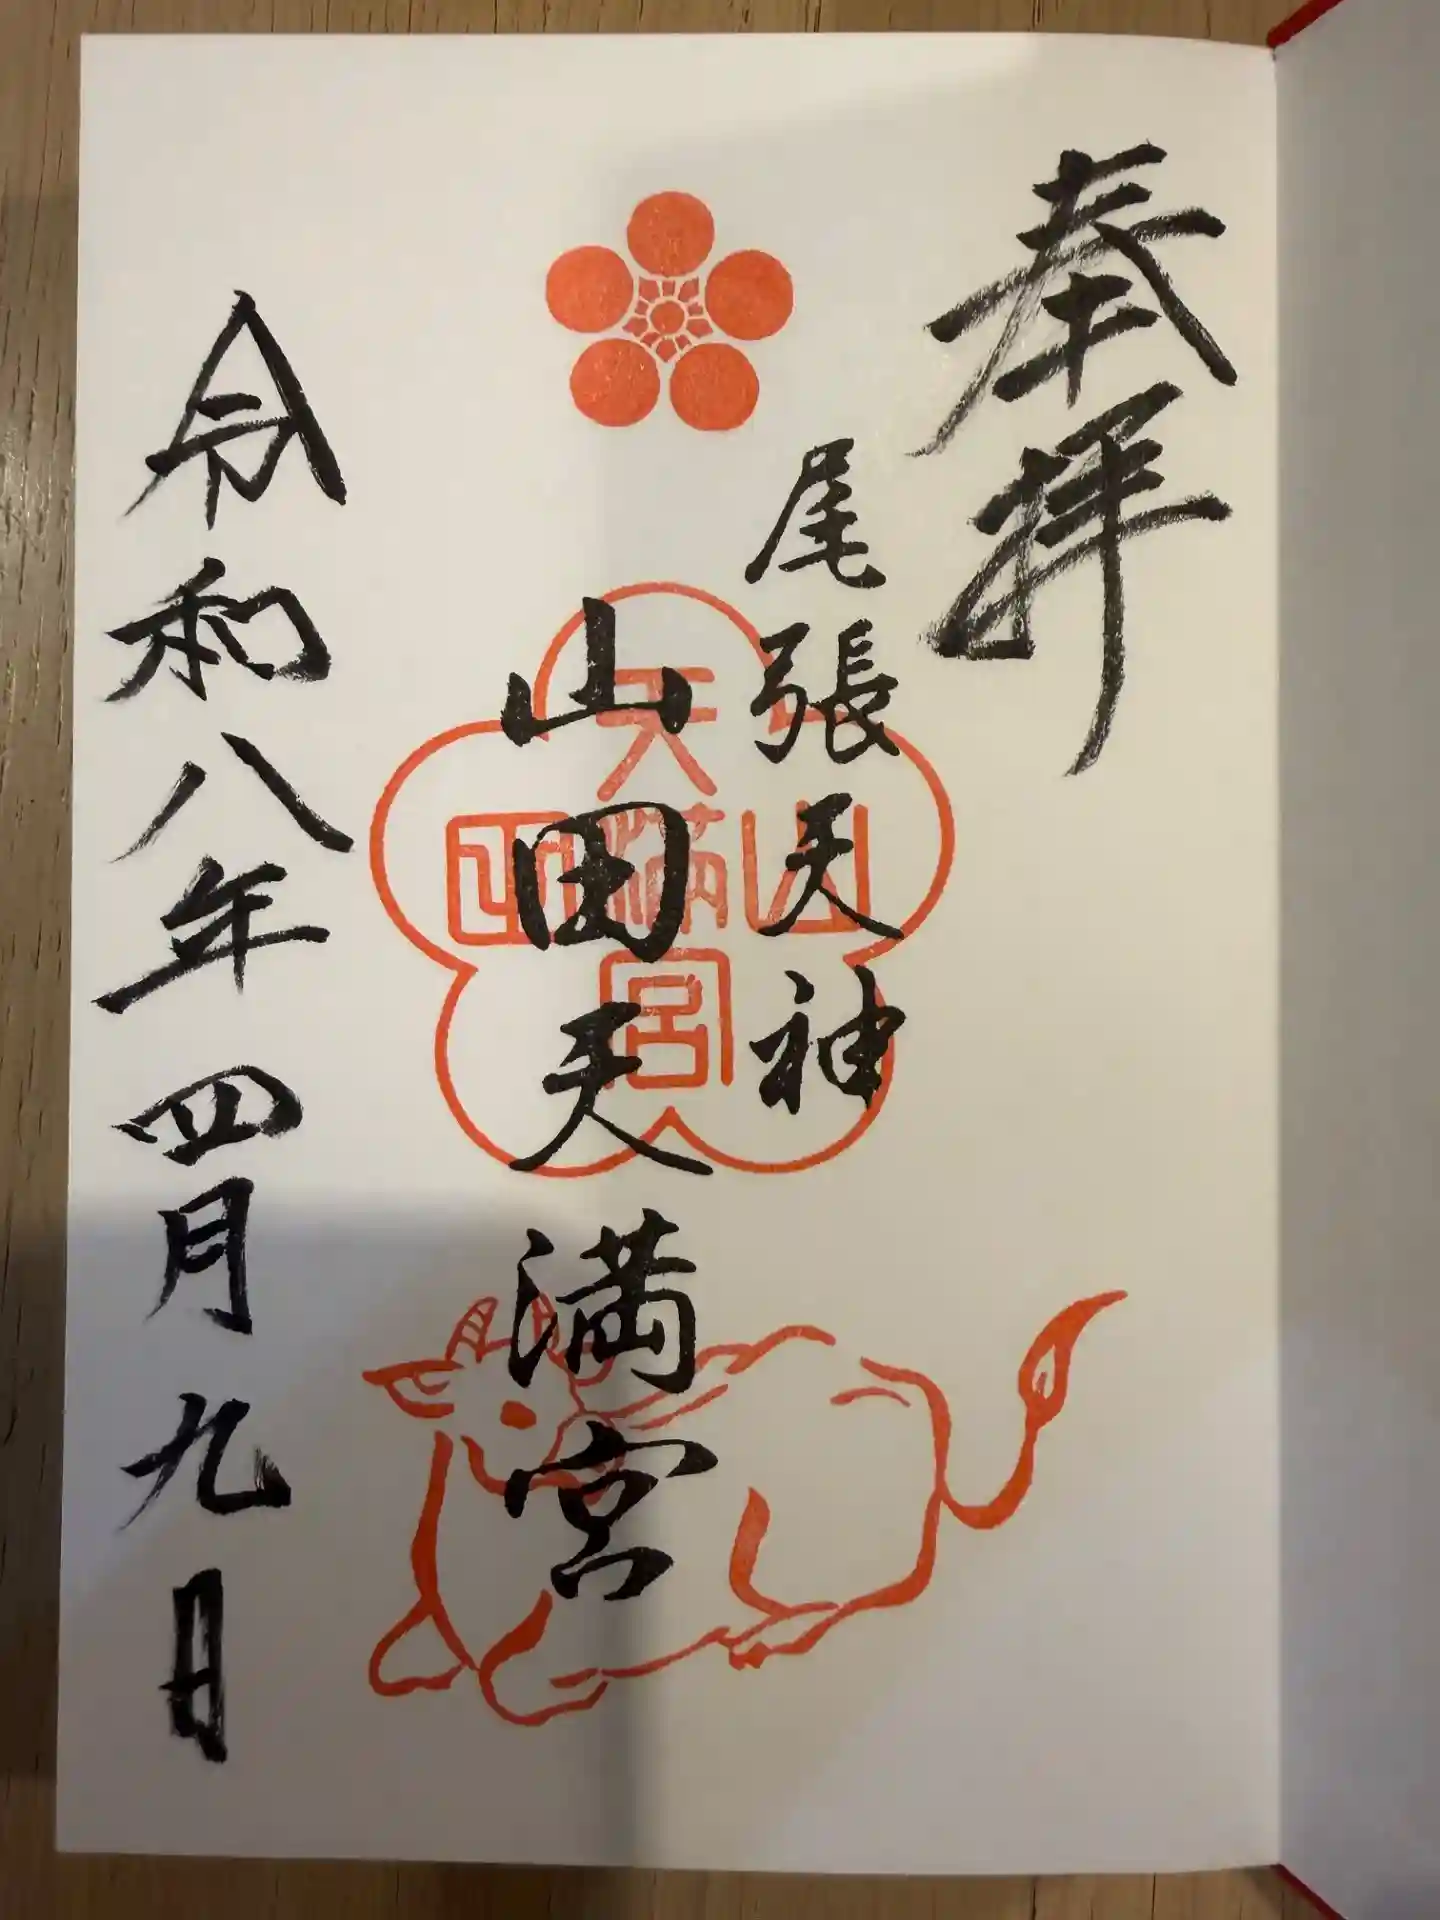 奉拝
尾張天神
山田天満宮
山田天満宮
令和八年四月九日